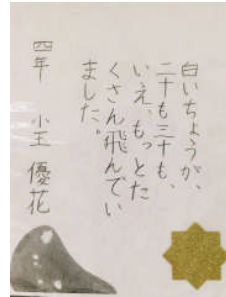 白いちょうが、
二十も三十も、
いえ、もっとた
くさん飛んでい
ました。
四年 小玉 優花